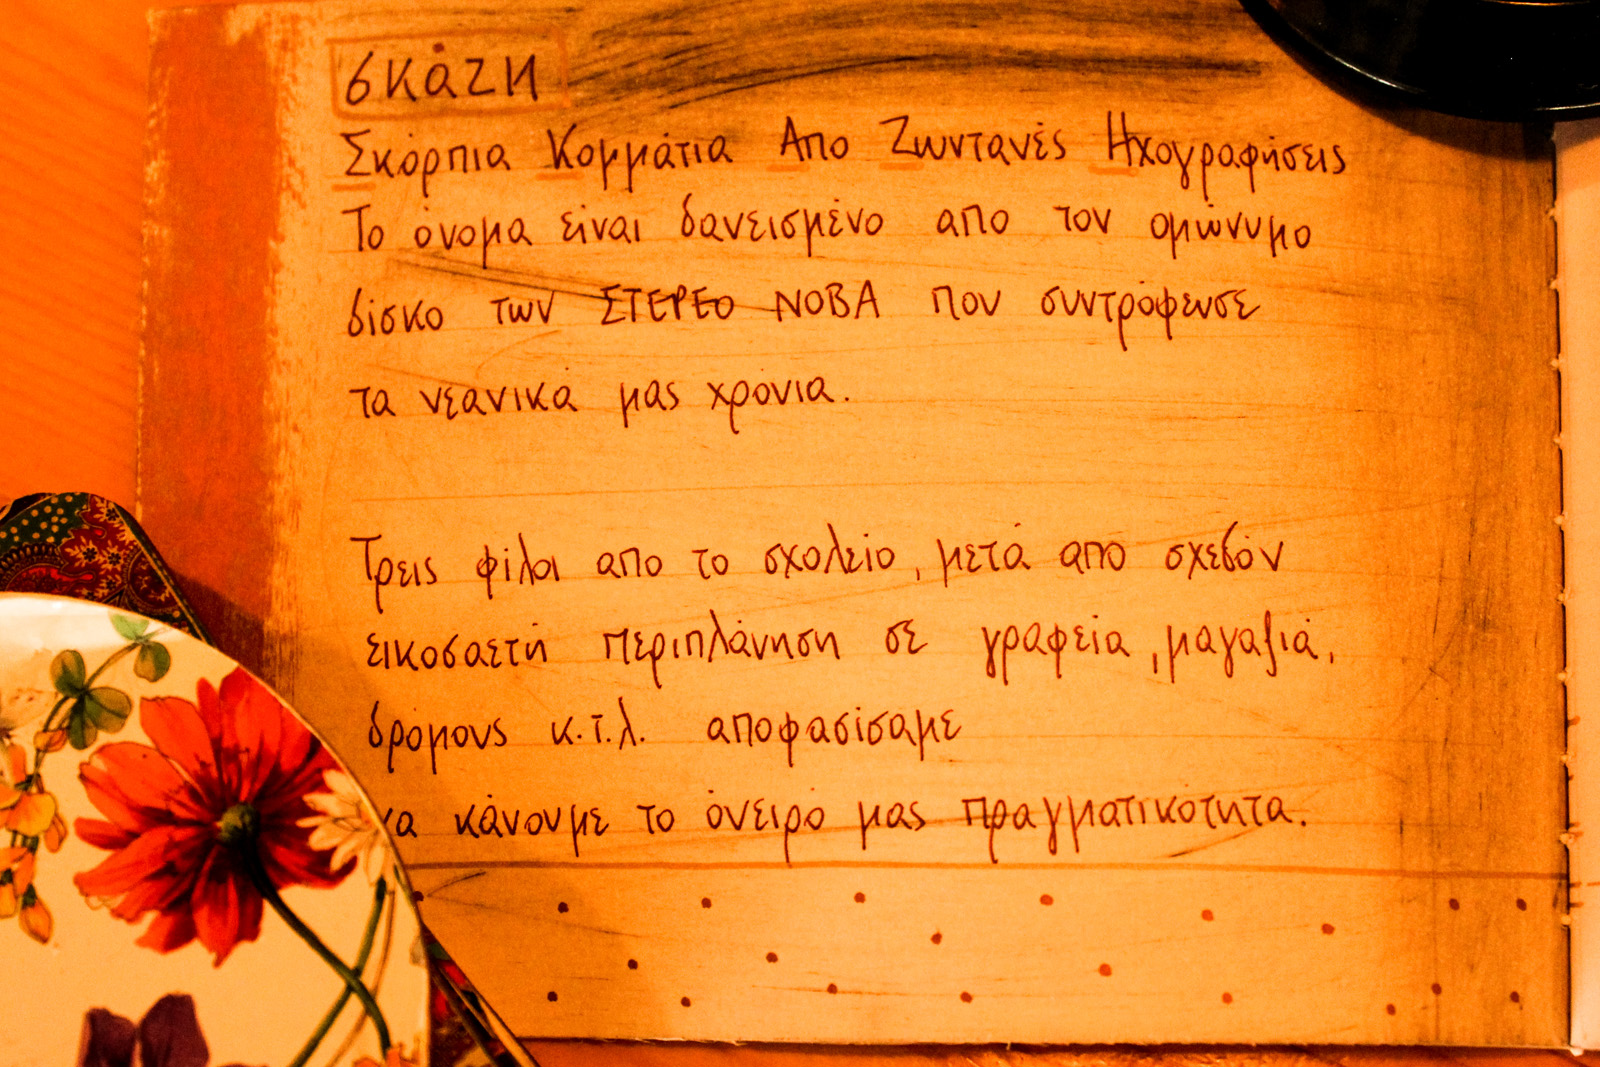 σκάζη
Σκόρπια Κομμάτια Απο Ζωντανές Ηχογραφήσεις
Το όνομα είναι δανεισμένο απο τον ομώνυμο
δίσκο των ΣΤΕΡΕΟ ΝΟΒΑ που συντρόφευσε
τα νεανικά μας χρόνια.
Τρεις φίλοι απο το σχολείο, μετά από σχεδόν
εικοσαετή περιπλάνηση σε γραφεία, μαγαζιά,
δρόμους κ.τ.λ. αποφασίσαμε
να κάνουμε το όνειρό μας πραγματικότητα.